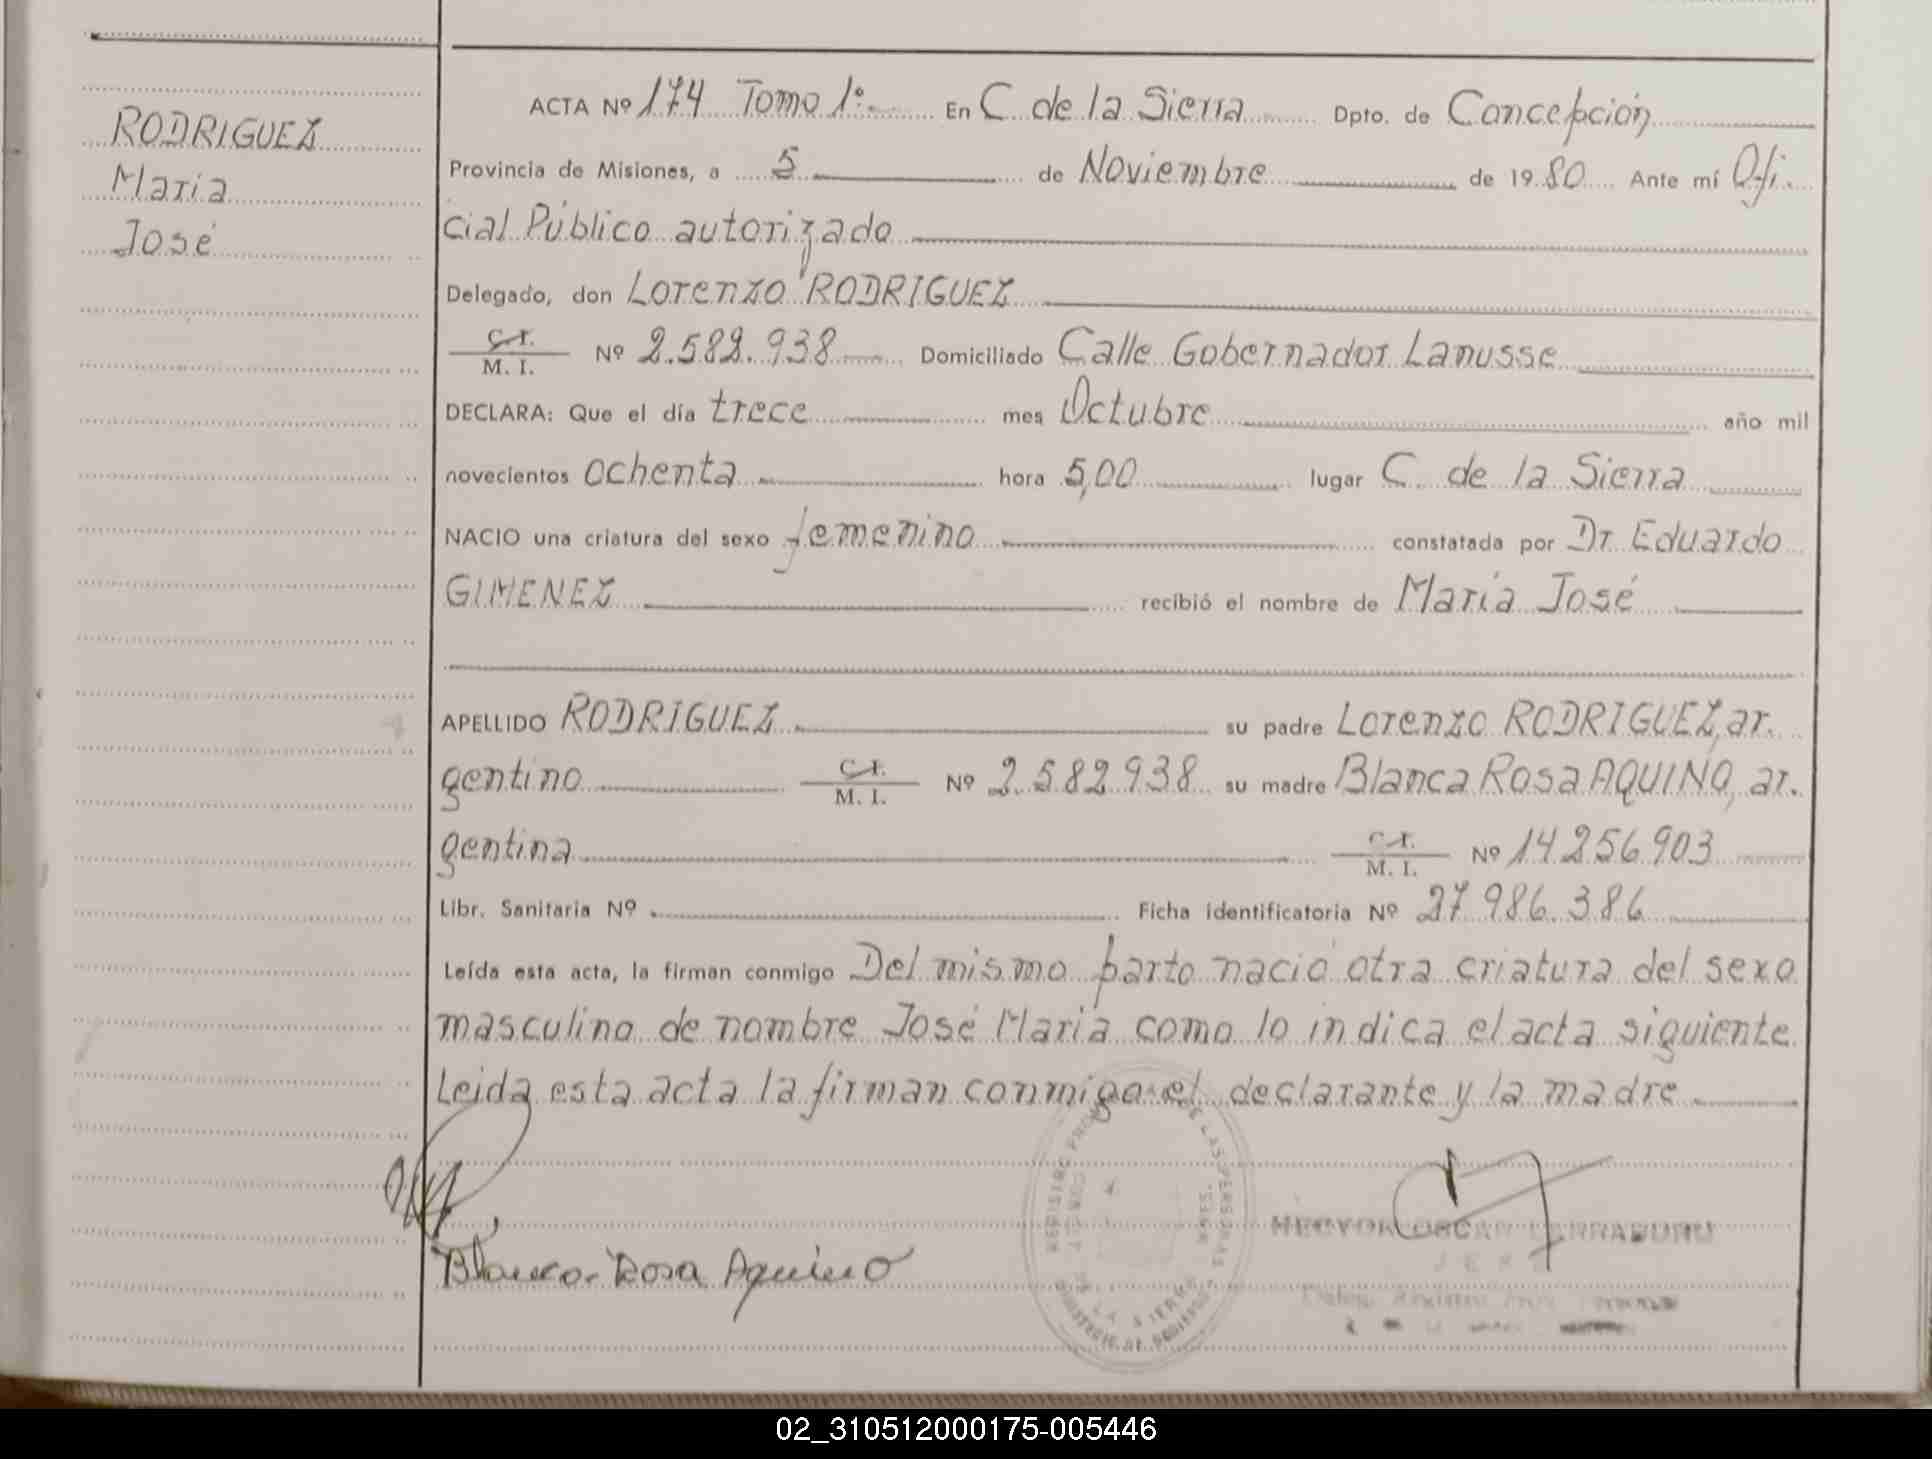 RODRIGUEZ
Maria
José
ACTA Nº 174 Tomo 1º.- En C. de la Sierra Dpto. de Concepción
Provincia de Misiones, a 5 de Noviembre de 1980 Ante mí Ofi-
cial Público autorizado
Delegado, don Lorenzo RODRIGUEZ
C. I.
M. I. Nº 2.582.938 Domiciliado Calle Gobernador Lanusse
DECLARA: Que el día trece mes Octubre año mil
novecientos ochenta hora 5,00 lugar C. de la Sierra
NACIO una criatura del sexo femenino constatada por Dr. Eduardo
GIMENEZ recibió el nombre de María José
APELLIDO RODRIGUEZ su padre Lorenzo RODRIGUEZ, ar-
gentino C. I.
M. I. Nº 2.582.938 su madre Blanca Rosa AQUINO, ar-
gentina C. I.
M. I. Nº 14.256.903
Libr. Sanitaria Nº Ficha identificatoria Nº 27.986.386
Leída esta acta, la firman conmigo Del mismo parto nació otra criatura del sexo
masculino de nombre José Maria como lo indica el acta siguiente
Leida esta acta la firman conmigo el declarante y la madre
Blanca Rosa Aquino
HECTOR OSCAR LARRABURU
JEFE
02_310512000175-005446